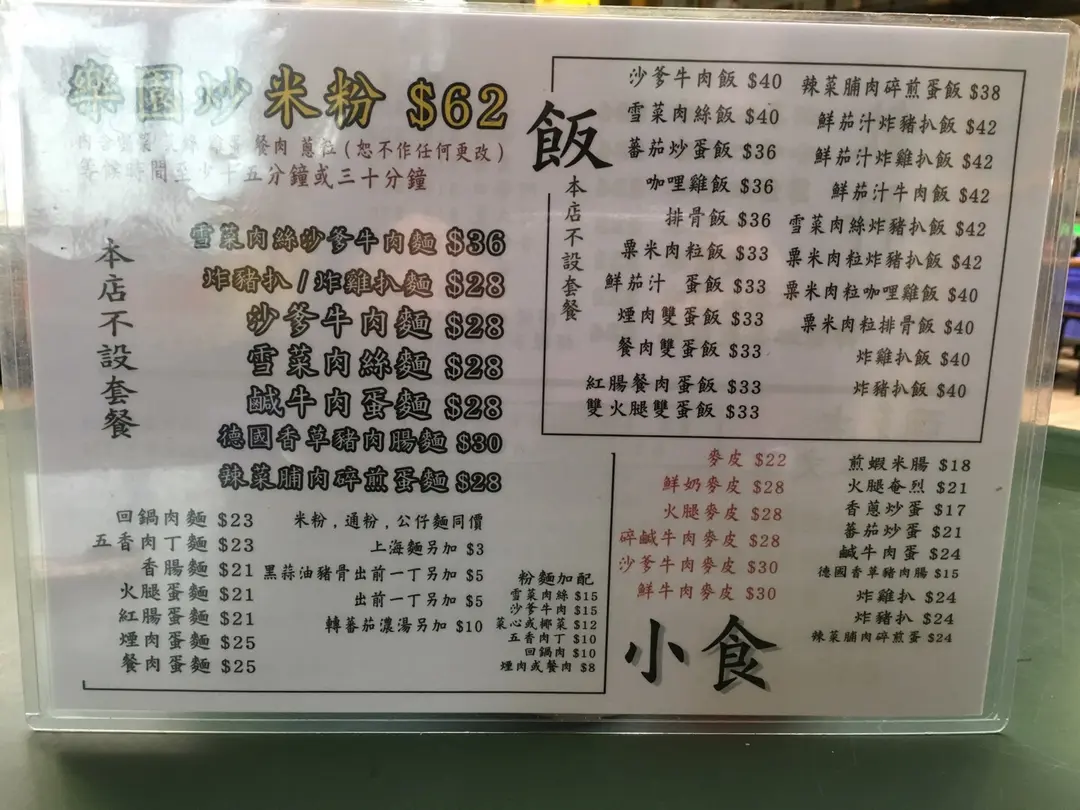 樂園炒米粉 $62
餐肉 蔥粒(恕不作任何更改)
等候時間至少十五分鐘或三十分鐘
本店不設套餐
雪菜肉絲沙爹牛肉麵 $36
炸豬扒/炸雞扒麵 $28
沙爹牛肉麵 $28
雪菜肉絲麵 $28
鹹牛肉蛋麵 $28
德國香草豬肉腸麵 $30
辣菜脯肉碎煎蛋麵 $28
回鍋肉麵 $23
五香肉丁麵 $23
香腸麵 $21
火腿蛋麵 $21
紅腸蛋麵 $21
煙肉蛋麵 $25
餐肉蛋麵 $25
米粉,通粉,公仔麵同價
上海麵另加 $3
黑蒜油豬骨出前一丁另加 $5
出前一丁另加 $5
轉蕃茄濃湯另加 $10
粉麵加配
雪菜肉絲 $15
沙爹牛肉 $15
菜心或椰菜 $12
五香肉丁 $10
回鍋肉 $10
煙肉或餐肉 $8
飯
本店不設套餐
沙爹牛肉飯 $40
雪菜肉絲飯 $40
蕃茄炒蛋飯 $36
咖哩雞飯 $36
排骨飯 $36
粟米肉粒飯 $33
鮮茄汁 蛋飯 $33
煙肉雙蛋飯 $33
餐肉雙蛋飯 $33
紅腸餐肉蛋飯 $33
雙火腿雙蛋飯 $33
辣菜脯肉碎煎蛋飯 $38
鮮茄汁炸豬扒飯 $42
鮮茄汁炸雞扒飯 $42
鮮茄汁牛肉飯 $42
雪菜肉絲炸豬扒飯 $42
粟米肉粒炸豬扒飯 $42
粟米肉粒咖哩雞飯 $40
粟米肉粒排骨飯 $40
炸雞扒飯 $40
炸豬扒飯 $40
麥皮 $22
鮮奶麥皮 $28
火腿麥皮 $28
碎鹹牛肉麥皮 $28
沙爹牛肉麥皮 $30
鮮牛肉麥皮 $30
小食
煎蝦米腸 $18
火腿奄烈 $21
香蔥炒蛋 $17
蕃茄炒蛋 $21
鹹牛肉蛋 $24
德國香草豬肉腸 $15
炸雞扒 $24
炸豬扒 $24
辣菜脯肉碎煎蛋 $24